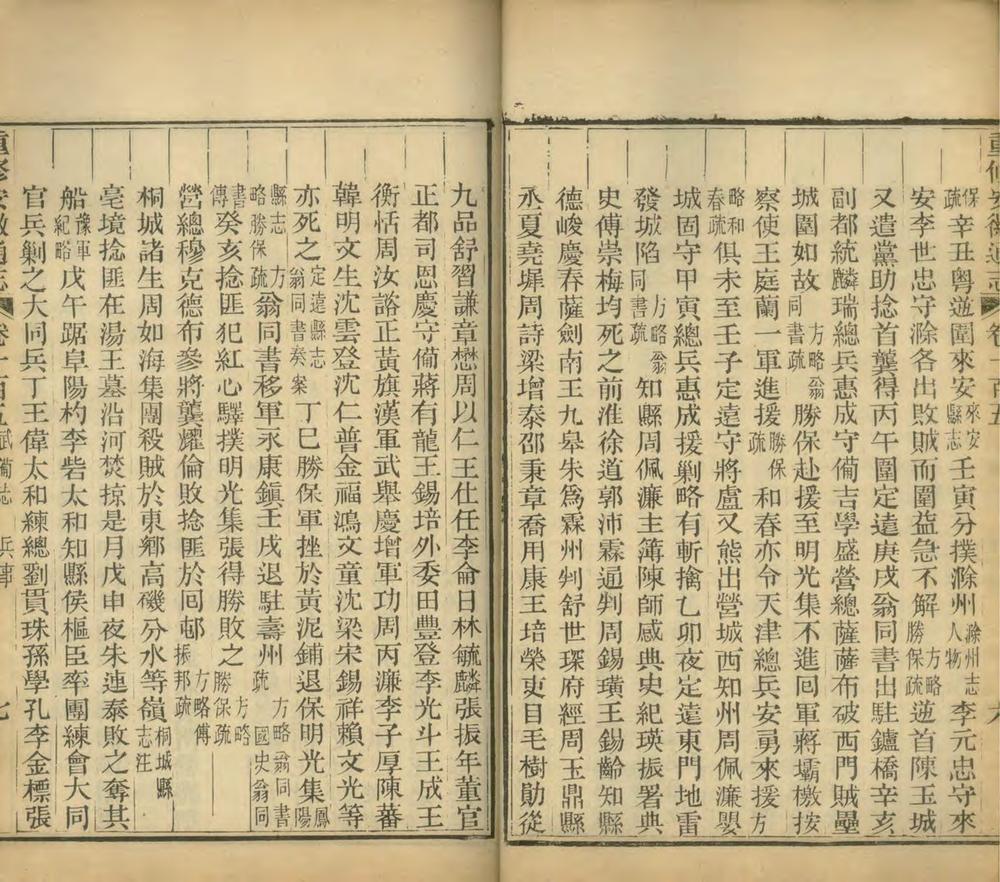 重修安徽通志 卷一百五 六
保疏辛丑粵逆圍來安來安縣志壬寅分撲滁州滁州志人物李元忠守來
安李世忠守滁各出敗賊而圍益急不解方略勝保疏逆首陳玉城
又遣黨助捻首龔得丙午圍定遠庚戌翁同書出駐鑪橋辛亥
副都統麟瑞總兵惠成守備吉學盛營總薩薩布破西門賊壘
城圍如故方略翁同書疏勝保赴援至明光集不進回軍蔣壩檄按
察使王庭蘭一軍進援勝保疏和春亦令天津總兵安勇來援方
略和春疏俱未至壬子定遠守將盧又熊出營城西知州周佩濂嬰
城固守甲寅總兵惠成援剿略有斬擒乙卯夜定遠東門地雷
發城陷方略翁同書疏知縣周佩濂主簿陳師感典史紀瑛振署典
史傅崇梅均死之前淮徐道郭沛霖通判周錫璜王錫齡知縣
德峻慶春薩劍南王九皋朱為霖州判舒世琛府經周玉鼎縣
丞夏堯墀周詩梁增泰邵秉章喬用康王培榮吏目毛樹勛從
九品舒習謙章懋周以仁王仕任李侖日林毓麟張振年董官
正都司恩慶守備蔣有龍王錫培外委田豐登李光斗王成王
衡恬周汝谿正黃旗漢軍武舉慶增軍功周丙濂李子厚陳蕃
韓明文生沈雲登沈仁普金福鴻文童沈梁宋錫祥賴文光等
亦死之定遠縣志翁同書奏案丁巳勝保軍挫於黃泥鋪退保明光集鳳陽
縣志方略勝保疏翁同書移軍永康鎮壬戌退駐壽州方略翁同書疏國史翁同
書傳癸亥捻匪犯紅心驛撲明光集張得勝敗之方略勝保疏
營總穆克德布參將龔耀倫敗捻匪於回邨方略傅振邦疏
桐城諸生周如海集團殺賊於東鄉高磯分水等嶺桐城縣志注
亳境捻匪在湯王墓沿河焚掠是月戊申夜朱連泰敗之奪其
船豫軍紀略戊午踞阜陽杓李砦太和知縣侯樞臣率團練會大同
官兵剿之大同兵丁王偉太和練總劉貫珠孫學孔李金標張
重修安徽通志 卷一百五 武備志 兵事 七